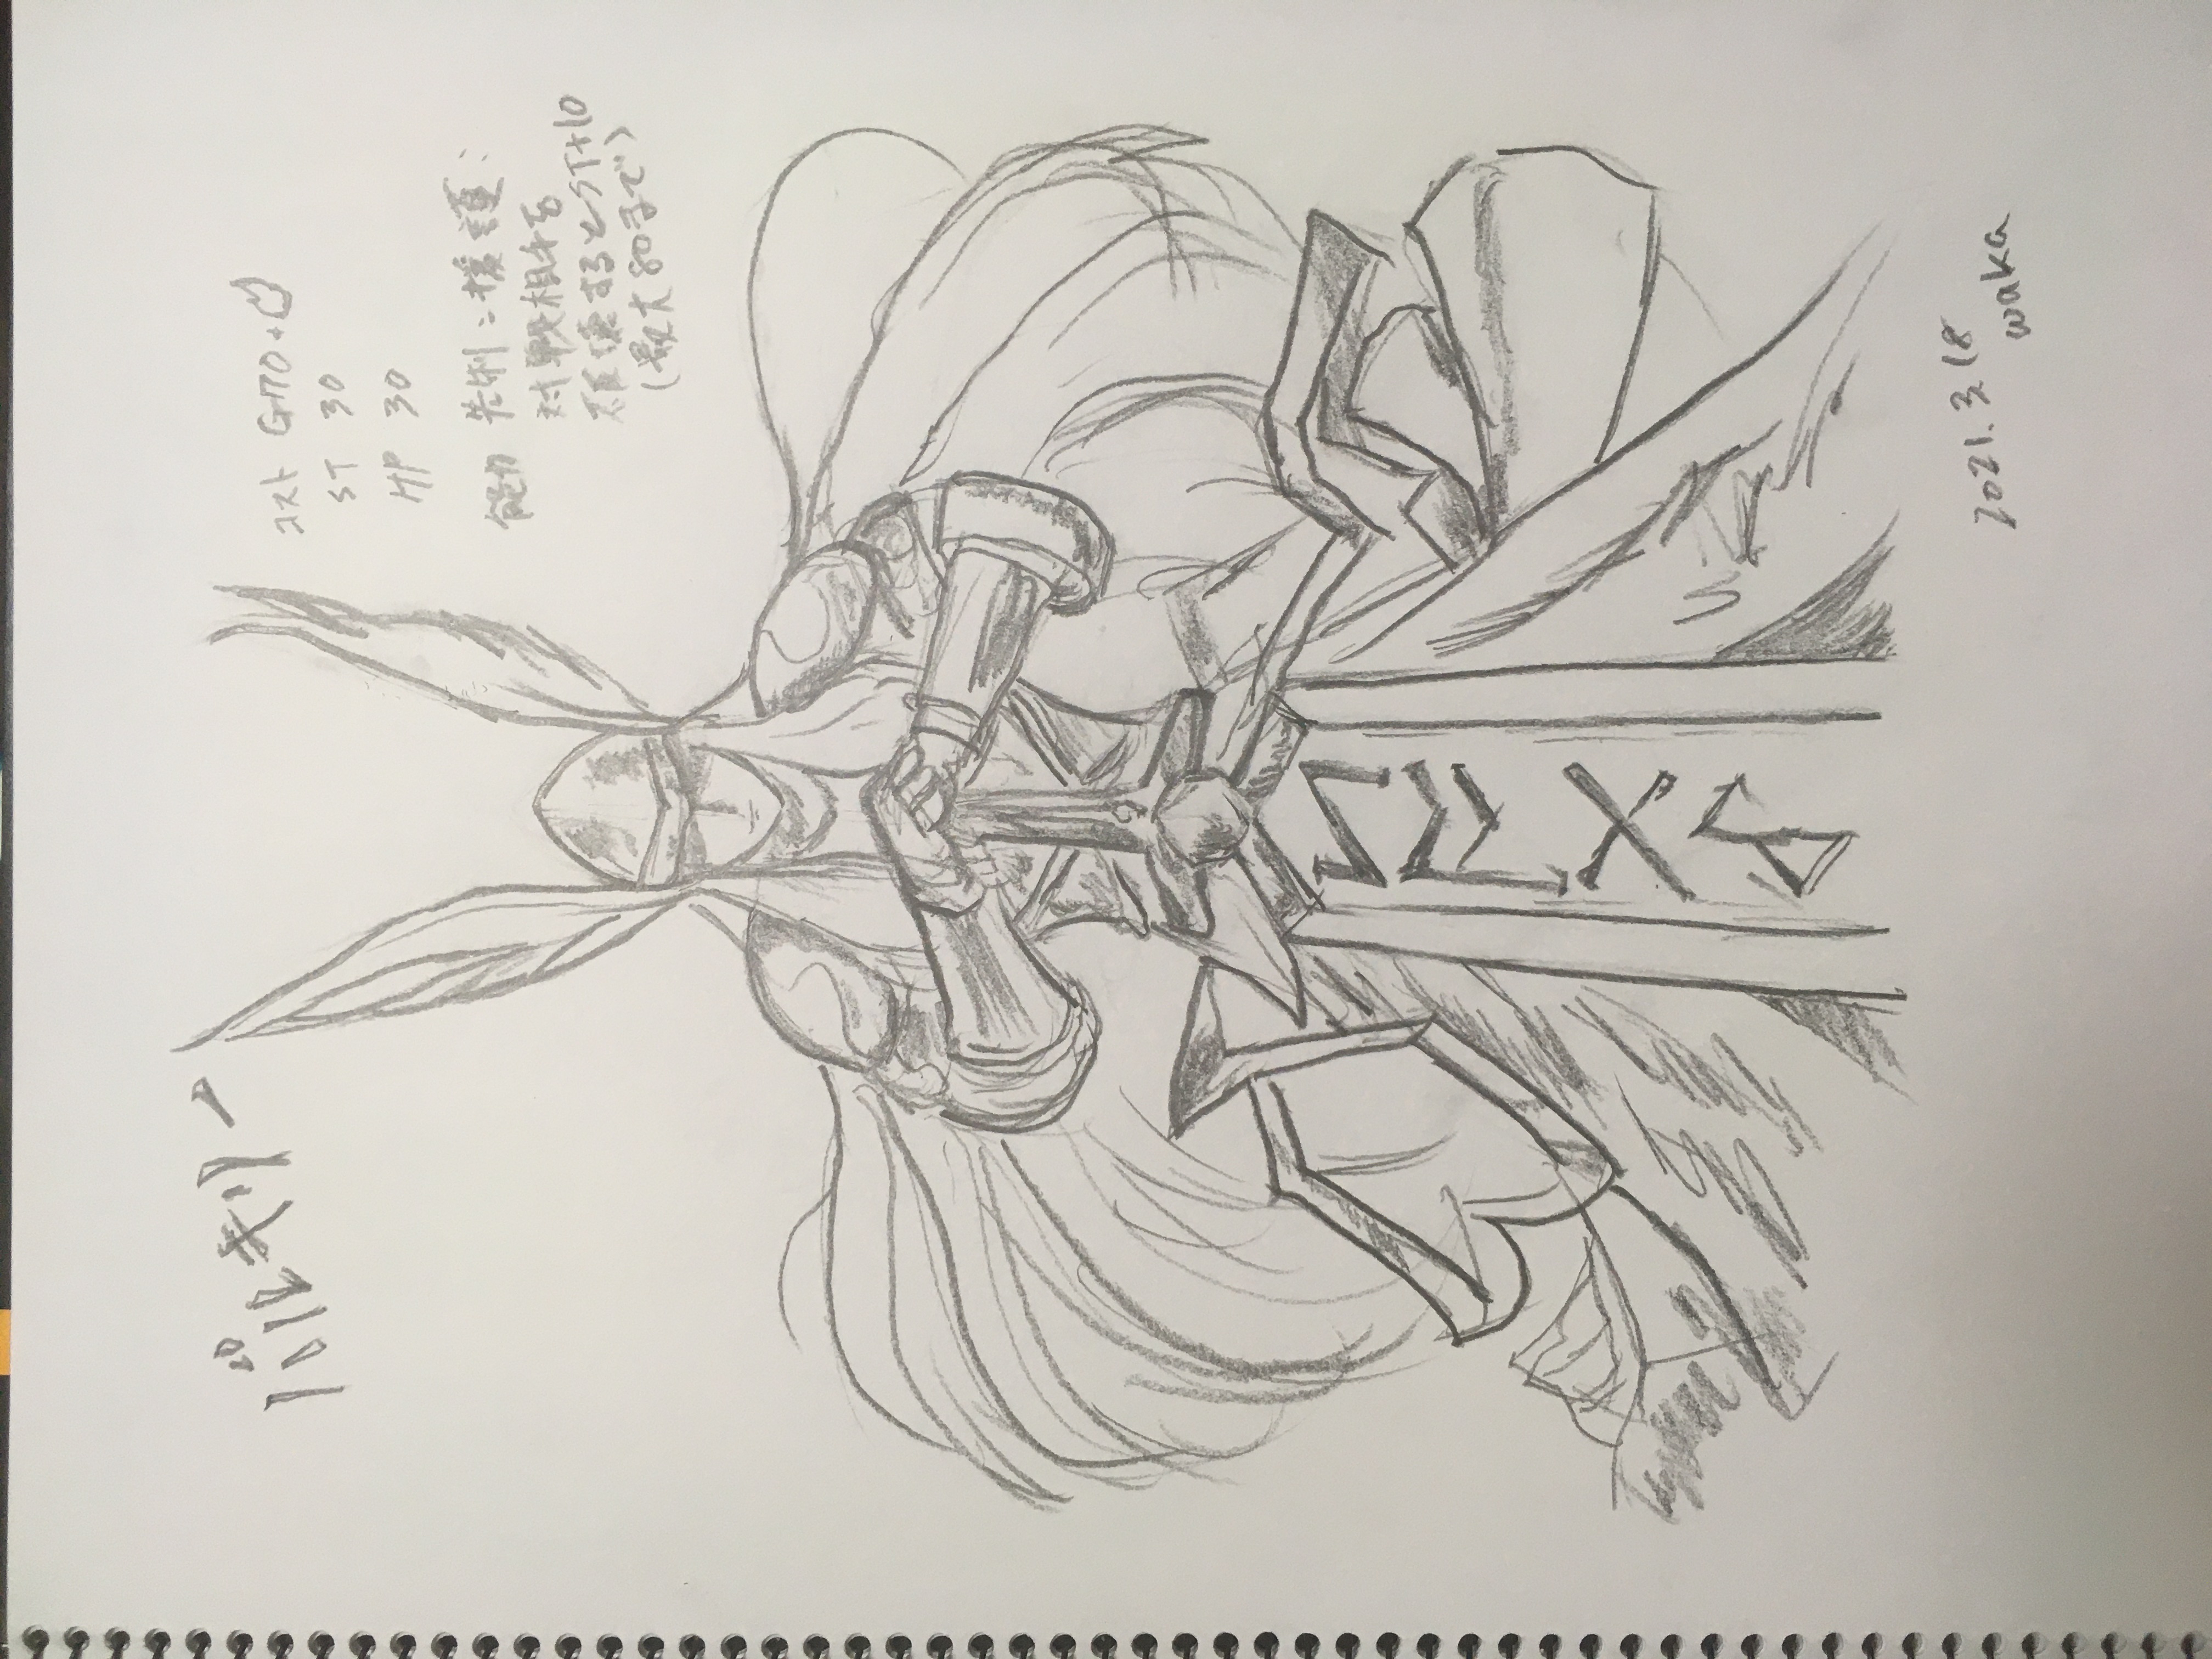 バルキリー
コスト G70+
ST 30
HP 30
能力 先制:援護:
対戦相手を
破壊するとST+10
(最大80まで)
2021.3.18
waka